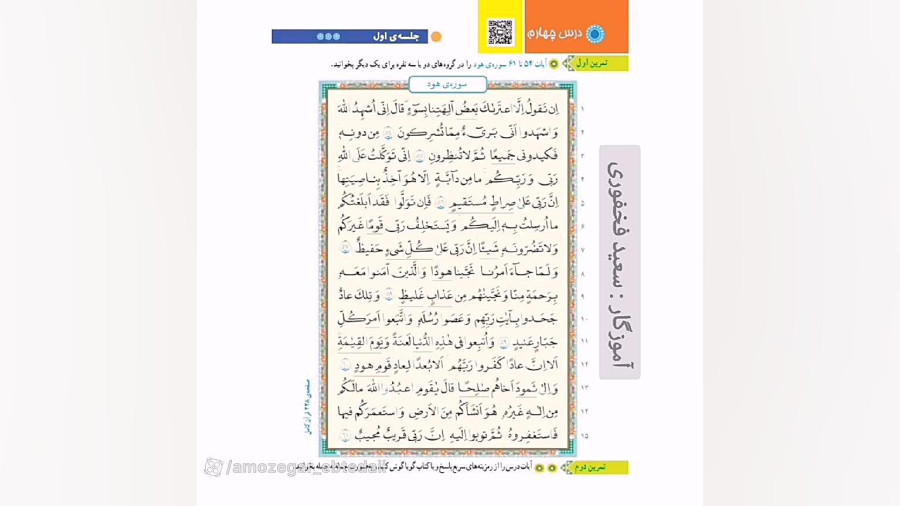 درس چهارم
جلسه‌ی اول
تمرین اول
آیات ۵۴ تا ۶۱ سوره‌ی هود را در گروه‌های دو یا سه نفره برای یک دیگر بخوانید.
سوره‌ی هود
۱ اِن نَقولُ اِلَّا اعتَرٰىكَ بَعضُ آلِهَتِنا بِسوٓءٍ قالَ اِنّى اُشهِدُ اللّٰهَ
۲ وَ اشهَدوا اَنّى بَرىٓءٌ مِمّا تُشرِكونَ مِن دونِهٖ
۳ فَكيدونى جَميعًا ثُمَّ لا تُنظِرونِ اِنّى تَوَكَّلتُ عَلَى اللّٰهِ
۴ رَبّى وَ رَبِّكُم ما مِن دآبَّةٍ اِلّا هُوَ آخِذٌ بِناصِيَتِها
۵ اِنَّ رَبّى عَلىٰ صِراطٍ مُستَقيمٍ فَاِن تَوَلَّوا فَقَد اَبلَغتُكُم
۶ ما اُرسِلتُ بِهٖ اِلَيكُم وَ يَستَخلِفُ رَبّى قَومًا غَيرَكُم
۷ وَ لا تَضُرّونَهٗ شَيئًا اِنَّ رَبّى عَلىٰ كُلِّ شَىءٍ حَفيظٌ
۸ وَ لَمّا جآءَ اَمرُنا نَجَّينا هودًا وَ الَّذينَ آمَنوا مَعَهٗ
۹ بِرَحمَةٍ مِنّا وَ نَجَّيناهُم مِن عَذابٍ غَليظٍ وَ تِلكَ عادٌ
۱۰ جَحَدوا بِآياتِ رَبِّهِم وَ عَصَوا رُسُلَهٗ وَ اتَّبَعوا اَمرَ كُلِّ
۱۱ جَبّارٍ عَنيدٍ وَ اُتبِعوا فى هٰذِهِ الدُّنيا لَعنَةً وَ يَومَ القِيٰمَةِ
۱۲ اَلا اِنَّ عادًا كَفَروا رَبَّهُم اَلا بُعدًا لِعادٍ قَومِ هودٍ
۱۳ وَ اِلىٰ ثَمودَ اَخاهُم صٰلِحًا قالَ يٰقَومِ اعبُدُوا اللّٰهَ ما لَكُم
۱۴ مِن اِلٰهٍ غَيرُهٗ هُوَ اَنشَاَكُم مِنَ الاَرضِ وَ استَعمَرَكُم فيها
۱۵ فَاستَغفِروهُ ثُمَّ توبوا اِلَيهِ اِنَّ رَبّى قَريبٌ مُجيبٌ
صفحه‌ی ۲۲۸ قرآن کامل
آموزگار : سعید فخفوری
تمرین دوم
آیات درس را از رمزینه‌های سریع پاسخ و یا کتاب گویا گوش کنید
/amozegar_ebtedaii